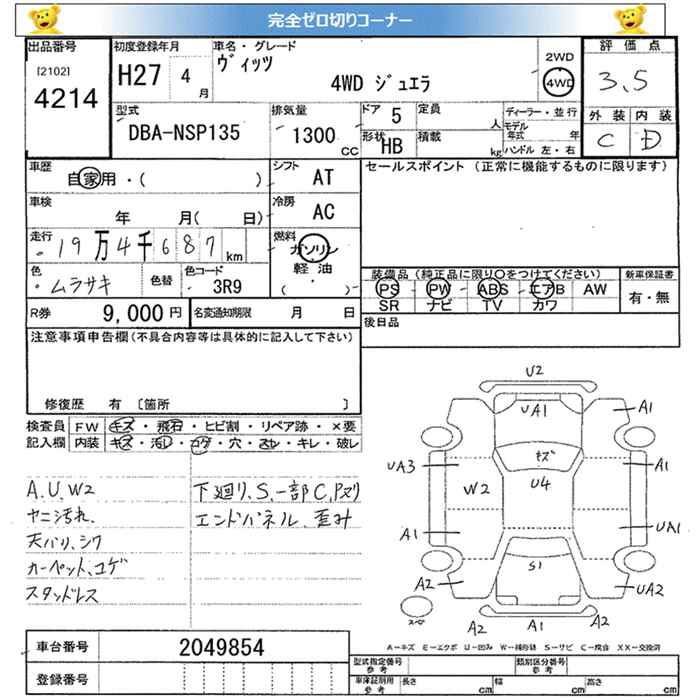 完全ゼロ切りコーナー
出品番号 初度登録年月 車名・グレード 評価点
[2102] 4214 H27 4月 ヴィッツ 4WD ジュエラ 2WD 4WD 3.5
型式 DBA-NSP135 排気量 1300 CC ドア 5 定員 人 ディーラー・並行 外装 内装
形状 HB 積載 kg モデル年式 年 ハンドル 左・右 C D
車歴 自家用・( ) シフト AT セールスポイント (正常に機能するものに限ります)
車検 年 月( 日) 冷房 AC
走行 19万4千687km 燃料 ガソリン 軽油 ( ・ )
色 ムラサキ 色替 色コード 3R9 装備品 (純正品に限り○をつけてください) 新車保証書
PS PW ABS エアB AW 有・無
SR ナビ TV カワ
R券 9,000円 名変通知期限 月 日 後日品
注意事項申告欄(不具合内容等は具体的に記入して下さい)
修復歴 有 [箇所 ]
検査員 FW キズ・飛石・ヒビ割・リペア跡・×要
記入欄 内装 キズ・汚レ・コゲ・穴・スレ・キレ・破レ
A.U.W2 下廻り、S.一部C.Pズリ
ヤニ汚れ. エンドパネル、歪み
天バリ、シワ
カーペット、コゲ
スタッドレス
U2
UA1 A1
キズ
UA3 W2 U4 A1
A1 UA1
S1
A2 UA2
スペア A2 A1 A2
A-キズ E-エクボ U-凹み W-補修跡 S-サビ C-腐食 XX-交換済
車台番号 2049854
登録番号
型式指定番号 参考 類別区分番号 参考
車庫証明用 参考 長さ cm 幅 cm 高さ cm